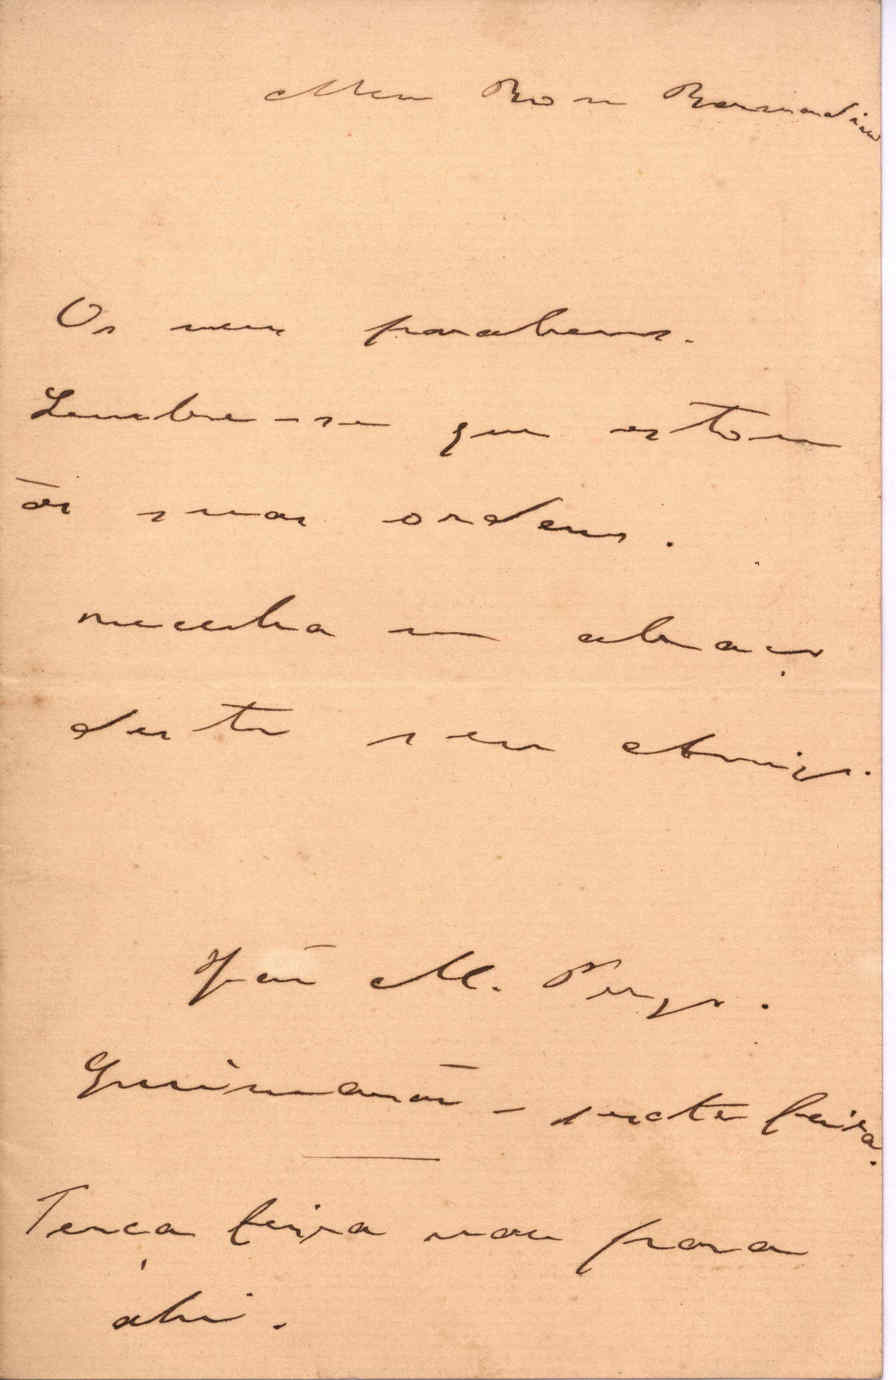 Meu Bom Bernardino
Os meus parabens.
Lembre-se que estou
ás suas ordens.
Receba um abraço
deste seu Amigo.
João M.
Guimarães - sexta feira.
Terça feira vou para
ahi.